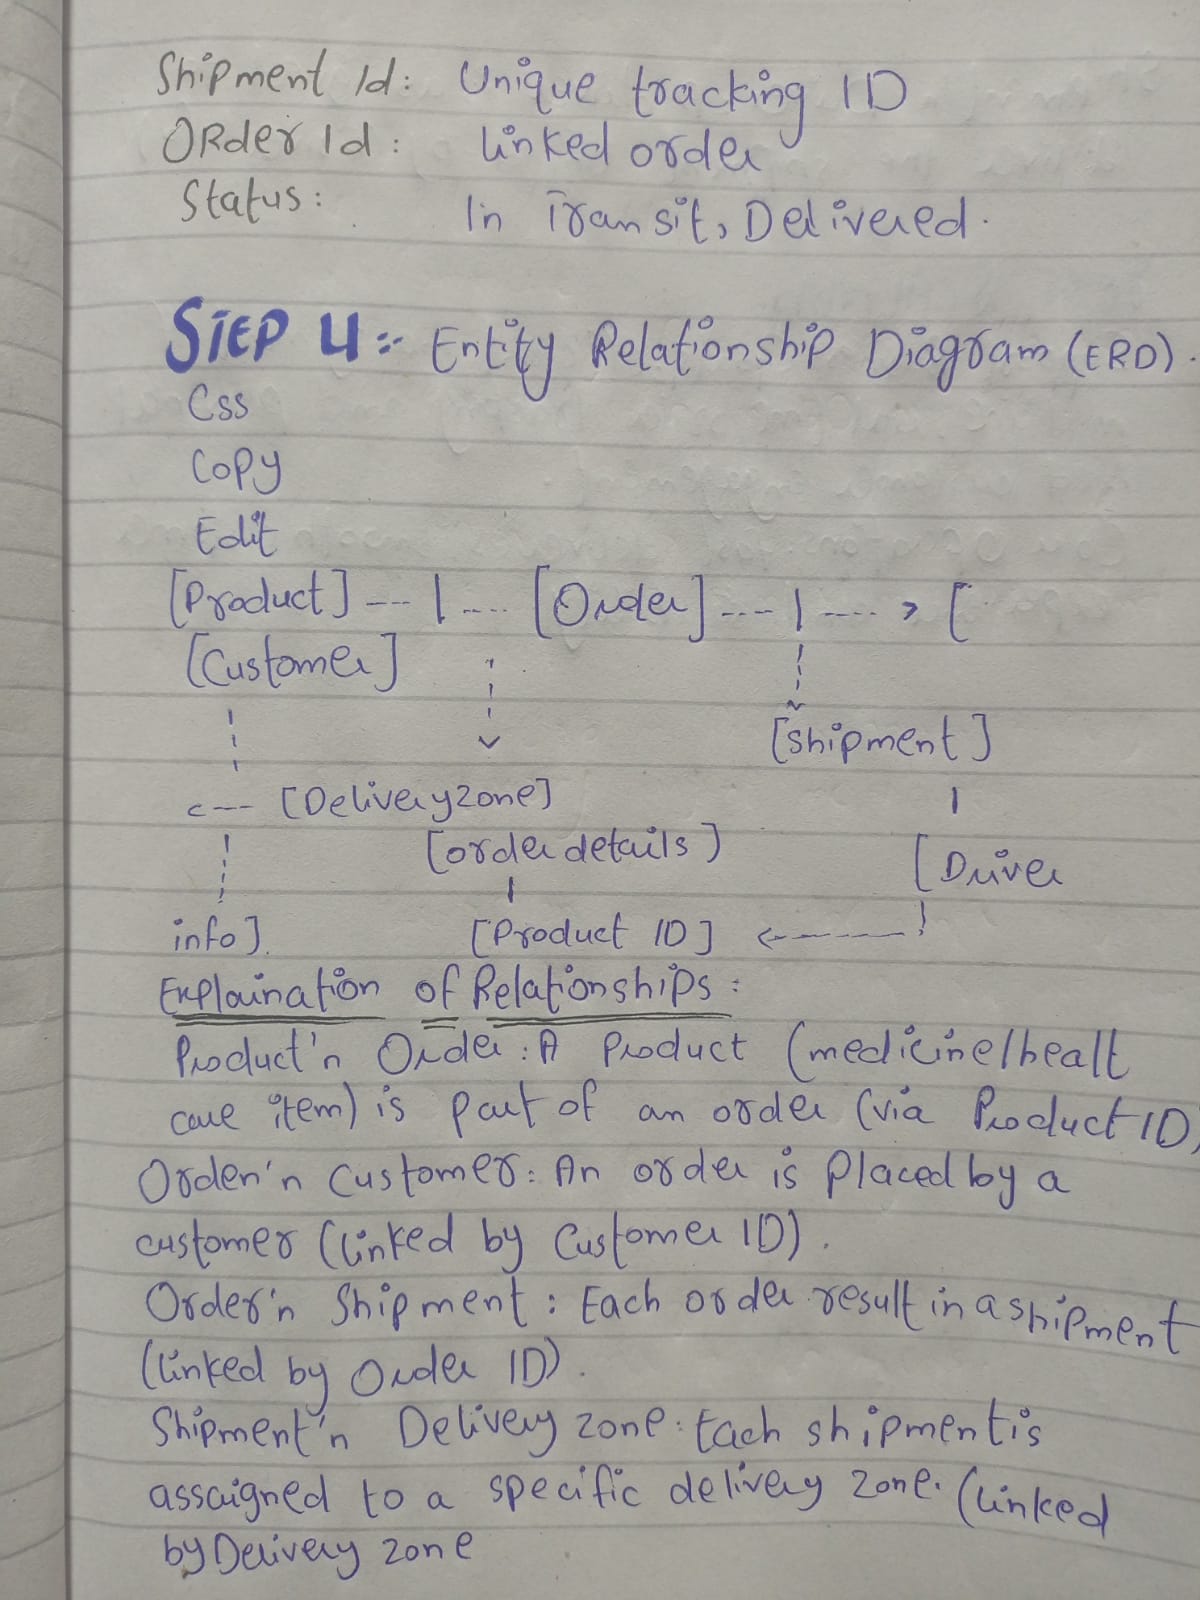 Shipment Id: Unique tracking ID
ORder Id: linked order
Status: In Transit, Delivered.
STEP 4:- Entity Relationship Diagram (ERD).
Css
Copy
Edit
[Product] --- | ---- [Order] ---- | ---- > [
[Customer]
[Shipment]
<--- [Deliveryzone]
[order details]
[Driver
info]. [Product ID] <------
Explaination of Relationships:
Product'n Order: A Product (medicine/healt
care item) is part of an order (via Product ID,
Order'n Customer: An order is Placed by a
customer (linked by Customer ID).
Order'n Shipment: Each order result in a shipment
(linked by Order ID).
Shipment'n Delivery zone: Each shipment is
assaigned to a specific delivery zone. (linked
by Delivery zone